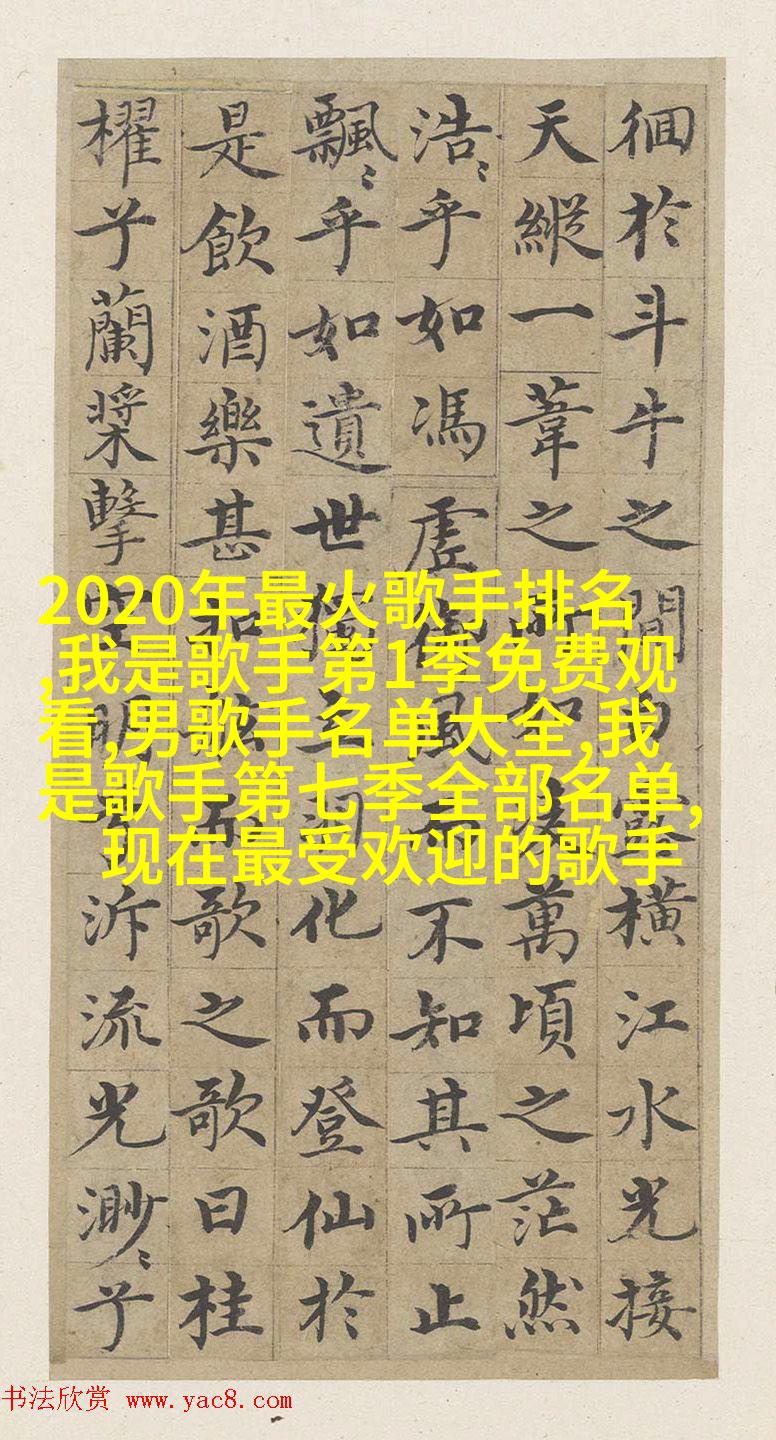 徊於斗牛之間白露橫江水光接
天縱一葦之所如凌萬頃之茫然
浩〻乎如馮虛御風而不知其所止
飄〻乎如遺世獨立羽化而登仙於
是飲酒樂甚扣舷而歌之歌曰桂
櫂兮蘭槳擊空明兮泝流光渺〻兮
2020年最火歌手排名
,我是歌手第1季免费观
看,男歌手名单大全,我
是歌手第七季全部名单,
现在最受欢迎的歌手
书法欣赏 www.yac8.com